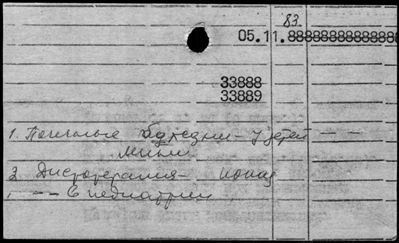 83.
05.11.888888888888888
33888
33889
1. Почечные болезни – у детей – –
2. Диетотерапия –
– – в педиатрии